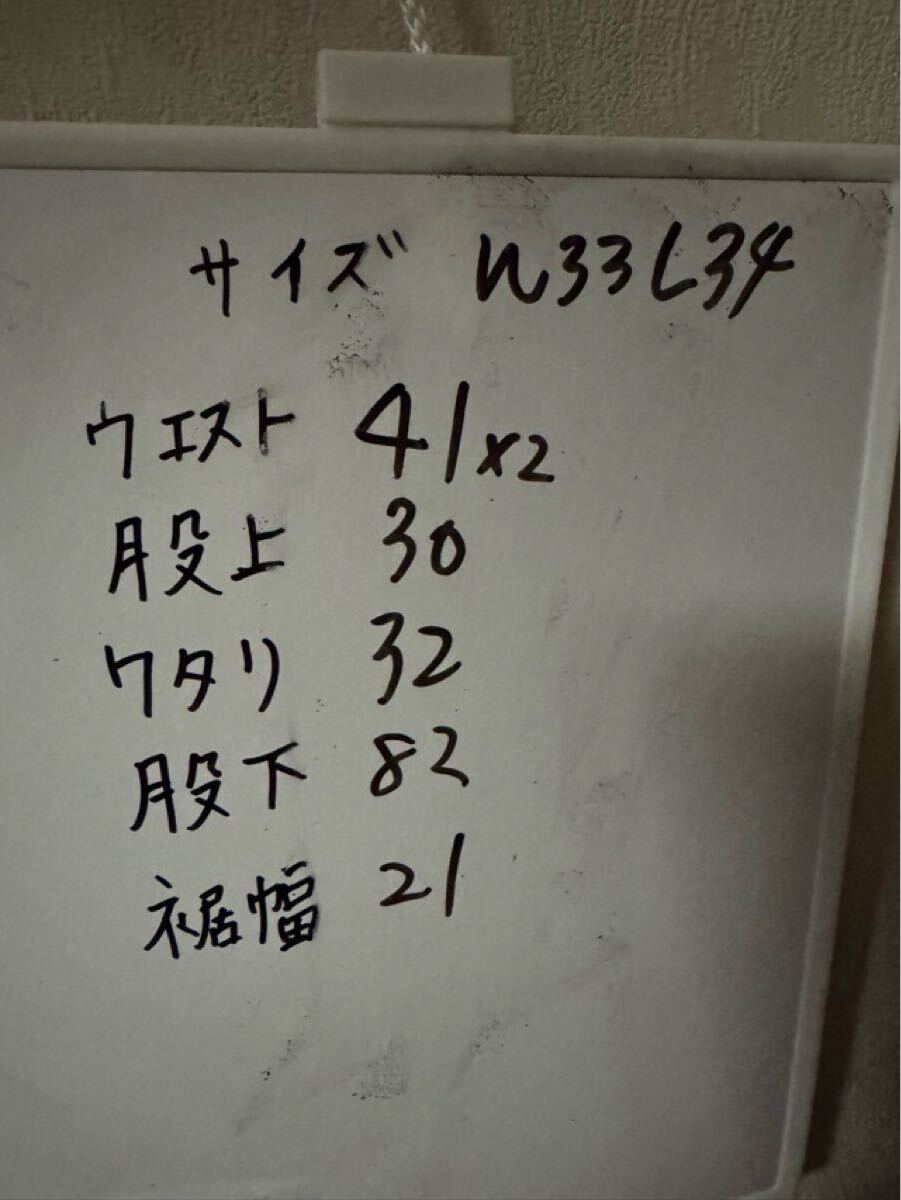 サイズ W33L34
ウエスト 41x2
股上 30
ワタリ 32
股下 82
裾幅 21